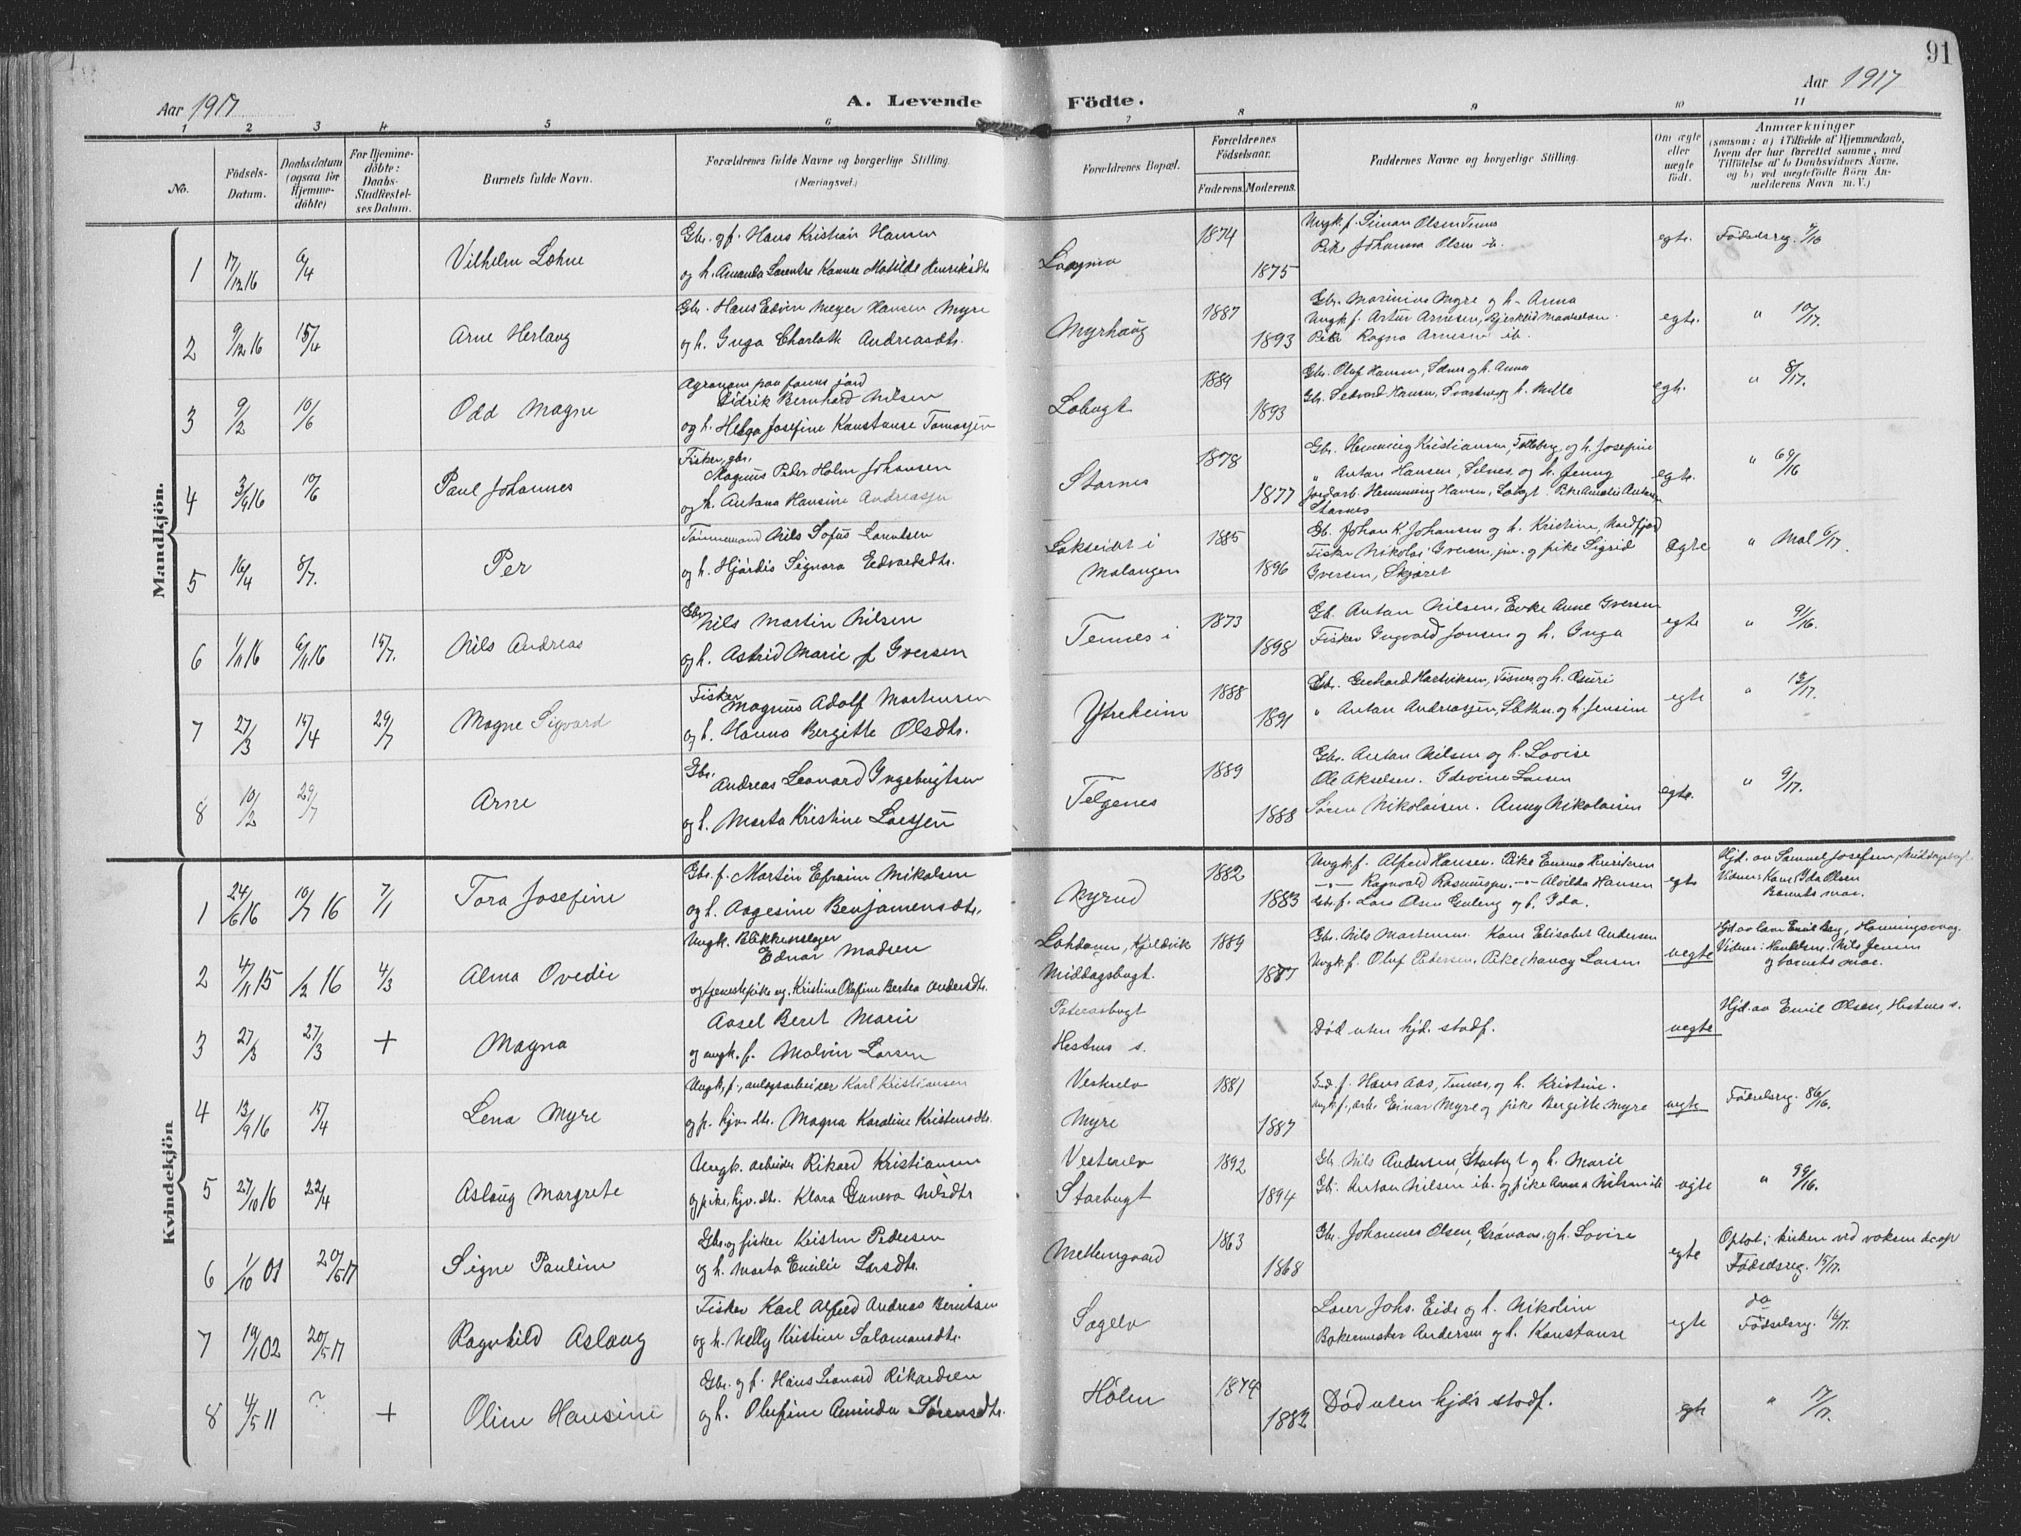 91
Aar 1917
A. Levende Födte.
Aar 1917
1 2 3 4 5 6 7 8 9 10 11
No.
Födsels-Datum.
Daabsdatum (ogsaa for Hjemmedöbte)
For Hjemmedöbte: Daabs-Stadfestelses Datum.
Barnets fulde Navn.
Forældrenes fulde Navne og borgerlige Stilling.
(Næringsvei.)
Forældrenes Bopæl.
Forældrenes Födselsaar.
Faderens. Moderens.
Faddernes Navne og borgerlige Stilling.
Om ægte eller uægte födt.
Anmærkninger
(saasom: a) i Tilfælde af Hjemmedaab, hvem der har forrettet samme, med Tilföielse af to Daabsvidners Navne, og b) ved uægtefödte Börn Anmelderens Navn m. V.)
Mandkjön.
1 17/12 16 9/4 Vilhelm Lohne
Gbr. og f. Hans Kristian Hansen
og h. Amanda Lorentse Kanuse Matilde Henriksdtr.
1874 1875
Ungk. f. Simon Olsen Tennes
Pike Johanna Olsen ib.
egte. Födselsreg. 9/16
2 9/12 16 15/4 Arne Herlaug
Gbr. Hans Edvin Meyer Hansen Myre
og h. Inga Charlotte Andreasdtr.
Myrhaug 1887 1893
Gbr. Marinius Myre og h. Anna
Ungk. f. Artur Arnesen,
Pike Ragna Arnesen ib.
egte. " 10/17.
3 9/2 10/6 Odd Magne
Agronom paa farens jord
Didrik Bernhard Nilsen
og h. Helga Josefine Konstanse Tomasjen
Lobugt 1889 1893
Gbr. Oluf Hansen, Selnes og h. Anna
Gbr. Sedvard Hansen, og h. Mille
egte. " 8/17.
4 3/9 16 10/6 Paul Johannes
Fisker, gbr.
Magnus Peder Holm Johansen
og h. Antona Hansine Andreasjen
Starnes 1878 1877
Gbr. Hemming Kristiansen, og h. Josefine
" Anton Hansen, Selnes, og h. Jenny
Jordarb. Hemming Hansen, Lobugt. Pike Amalie Antonsen
Starnes
egte. " 69/16
5 16/4 8/7. Per
Tömmermand Nils Sofus Larulsen
og h. Hjördis Signora Edvardsdtr.
Lakseidet i Malangen 1885 1896
Gb. Johan K. Johansen og h. Kristine, Nordfjord
Fisker Nikolai Iversen, jun. og pike Sigrid
Iversen, Skjæret
egte " Mal 6/17.
6 1/11 16 6/11 16 15/7. Nils Andreas
Gbr. Nils Martin Nilsen
og h. Astrid Marie f. Iversen
Tennes i 1873 1898
Gb. Anton Nilsen, Enke Anne Iversen
Fisker Ingvald Jonsen og h. Inga
egte " 9/16.
7 27/3 15/4 29/7 Magne Sigvard
Fisker
Magnus Adolf Mortensen
og h. Hanna Bergitte Olsdtr.
Ytreheim 1888 1891
Gbr. Gerhard Hartviksen, Tisnes og h. Guri
" Anton Andreasjen, Slåtten og h. Jensine
egte " 13/17.
8 10/2 29/7 Arne
Gbr.
Andreas Leonard Ingebrigtsen
og h. Marta Kristine Larsjen
Telgenes 1889 1888
Gbr. Anton Nilsen og h. Lovise
Ole Akselsen. Idevine Larsen
Sören Nikolaisen. Anny Nikolaisen
egte. " 9/17.
Kvindekjön
1 24/6 16 10/7 16 7/1 Tora Josefine
Gbr. f. Martin Efraim Mikalsen
og h. Aagesine Benjamensdtr.
Myrud 1882 1883
Ungk. f. Alfred Hansen. Pike Emma Henriksen
-"- Ragnvald Rasmussen. -"- Alvilda Hansen
Gbr. f. Lars Olsen Guleng og h. Ida.
egte
Hjd. av Samuel Josefsen, Middagsbugt
Vidner: Kone Ida Olsen
Barnets mor.
2 4/11 15 1/2 16 4/3 Alma Ovedie
Ungk. Blikkenslager
Edvar Madsen
og tjenestepike ug. Kristine Olefine Bertea Andersdtr.
Kjeldvik
Middagsbugt. 1889 1887
Gbr. Nils Mortensen. Kone Elisabet Andersen
Ungk. f. Oluf Pedersen, Pike Nancy Larsen
uegte
Hjd. av Emil Berg, Honningsvaag.
Vidner: Handelsm. Nils Jensen
og barnets mor.
3 27/3 27/3 + Magna
Aasel Beret Marie
og ungk. f. Malvin Larsen
Petersbugt
Hestnes s.
Död uten hjd. stadf.
uegte
Hjd. av Emil Olsen, Hestnes s.
4 13/9 16 15/4 Lena Myre
Ungk. f., anlegsarbeider Karl Kristiansen
og p. hjv. dtr. Magna Karoline Kristensdtr.
Vesterelv
Myre 1881 1887
Gb. f. Hans Aas, Tennes, og h. Kristine.
ungk. f., arb. Einar Myre og pike Bergitte Myre
uegte Födselsreg. 86/16.
5 27/10 16 22/4 Aslaug Margrete
Ungk. arbeider Rikard Kristiansen
og pike, hjv. dtr. Klara Guneva Nilsdtr
Vesterelv
Starbugt 1892 1894
Gb. Nils Andersen, Starbugt og h. Marie
Gb. Anton Nilsen ib. og pike Anna Nilsen ib
uegte " 99/16.
6 1/10 01 20/5 17 Signe Pauline
Gbr. og fisker Kristen Pedersen
og h. Marta Emilie Larsdtr.
Mellemgaard 1863 1868
Gbr. Johannes Olsen, Grönaas, og h. Lovise
egte
Optat i kirken ved voksen daap
Födselsreg. 15/17.
7 19/1 02 20/5 17 Ragnhild Aslaug
Fisker Karl Alfred Andreas Berntsen
og h. Nelly Kristine Salamonsdtr.
Sagelv
Lærer Johs. Eide og h. Nikoline
Bakermester Andersen og h. Konstanse
egte
do
Födselsreg. 16/17.
8 4/5 11 ? + Oline Hansine
Gbr. og f. Hans Leonard Rikardsen
og h. Olufine Aminda Sörensdtr.
Holm 1874 1882
Död uten hjd's stadf.
egte " 17/17.